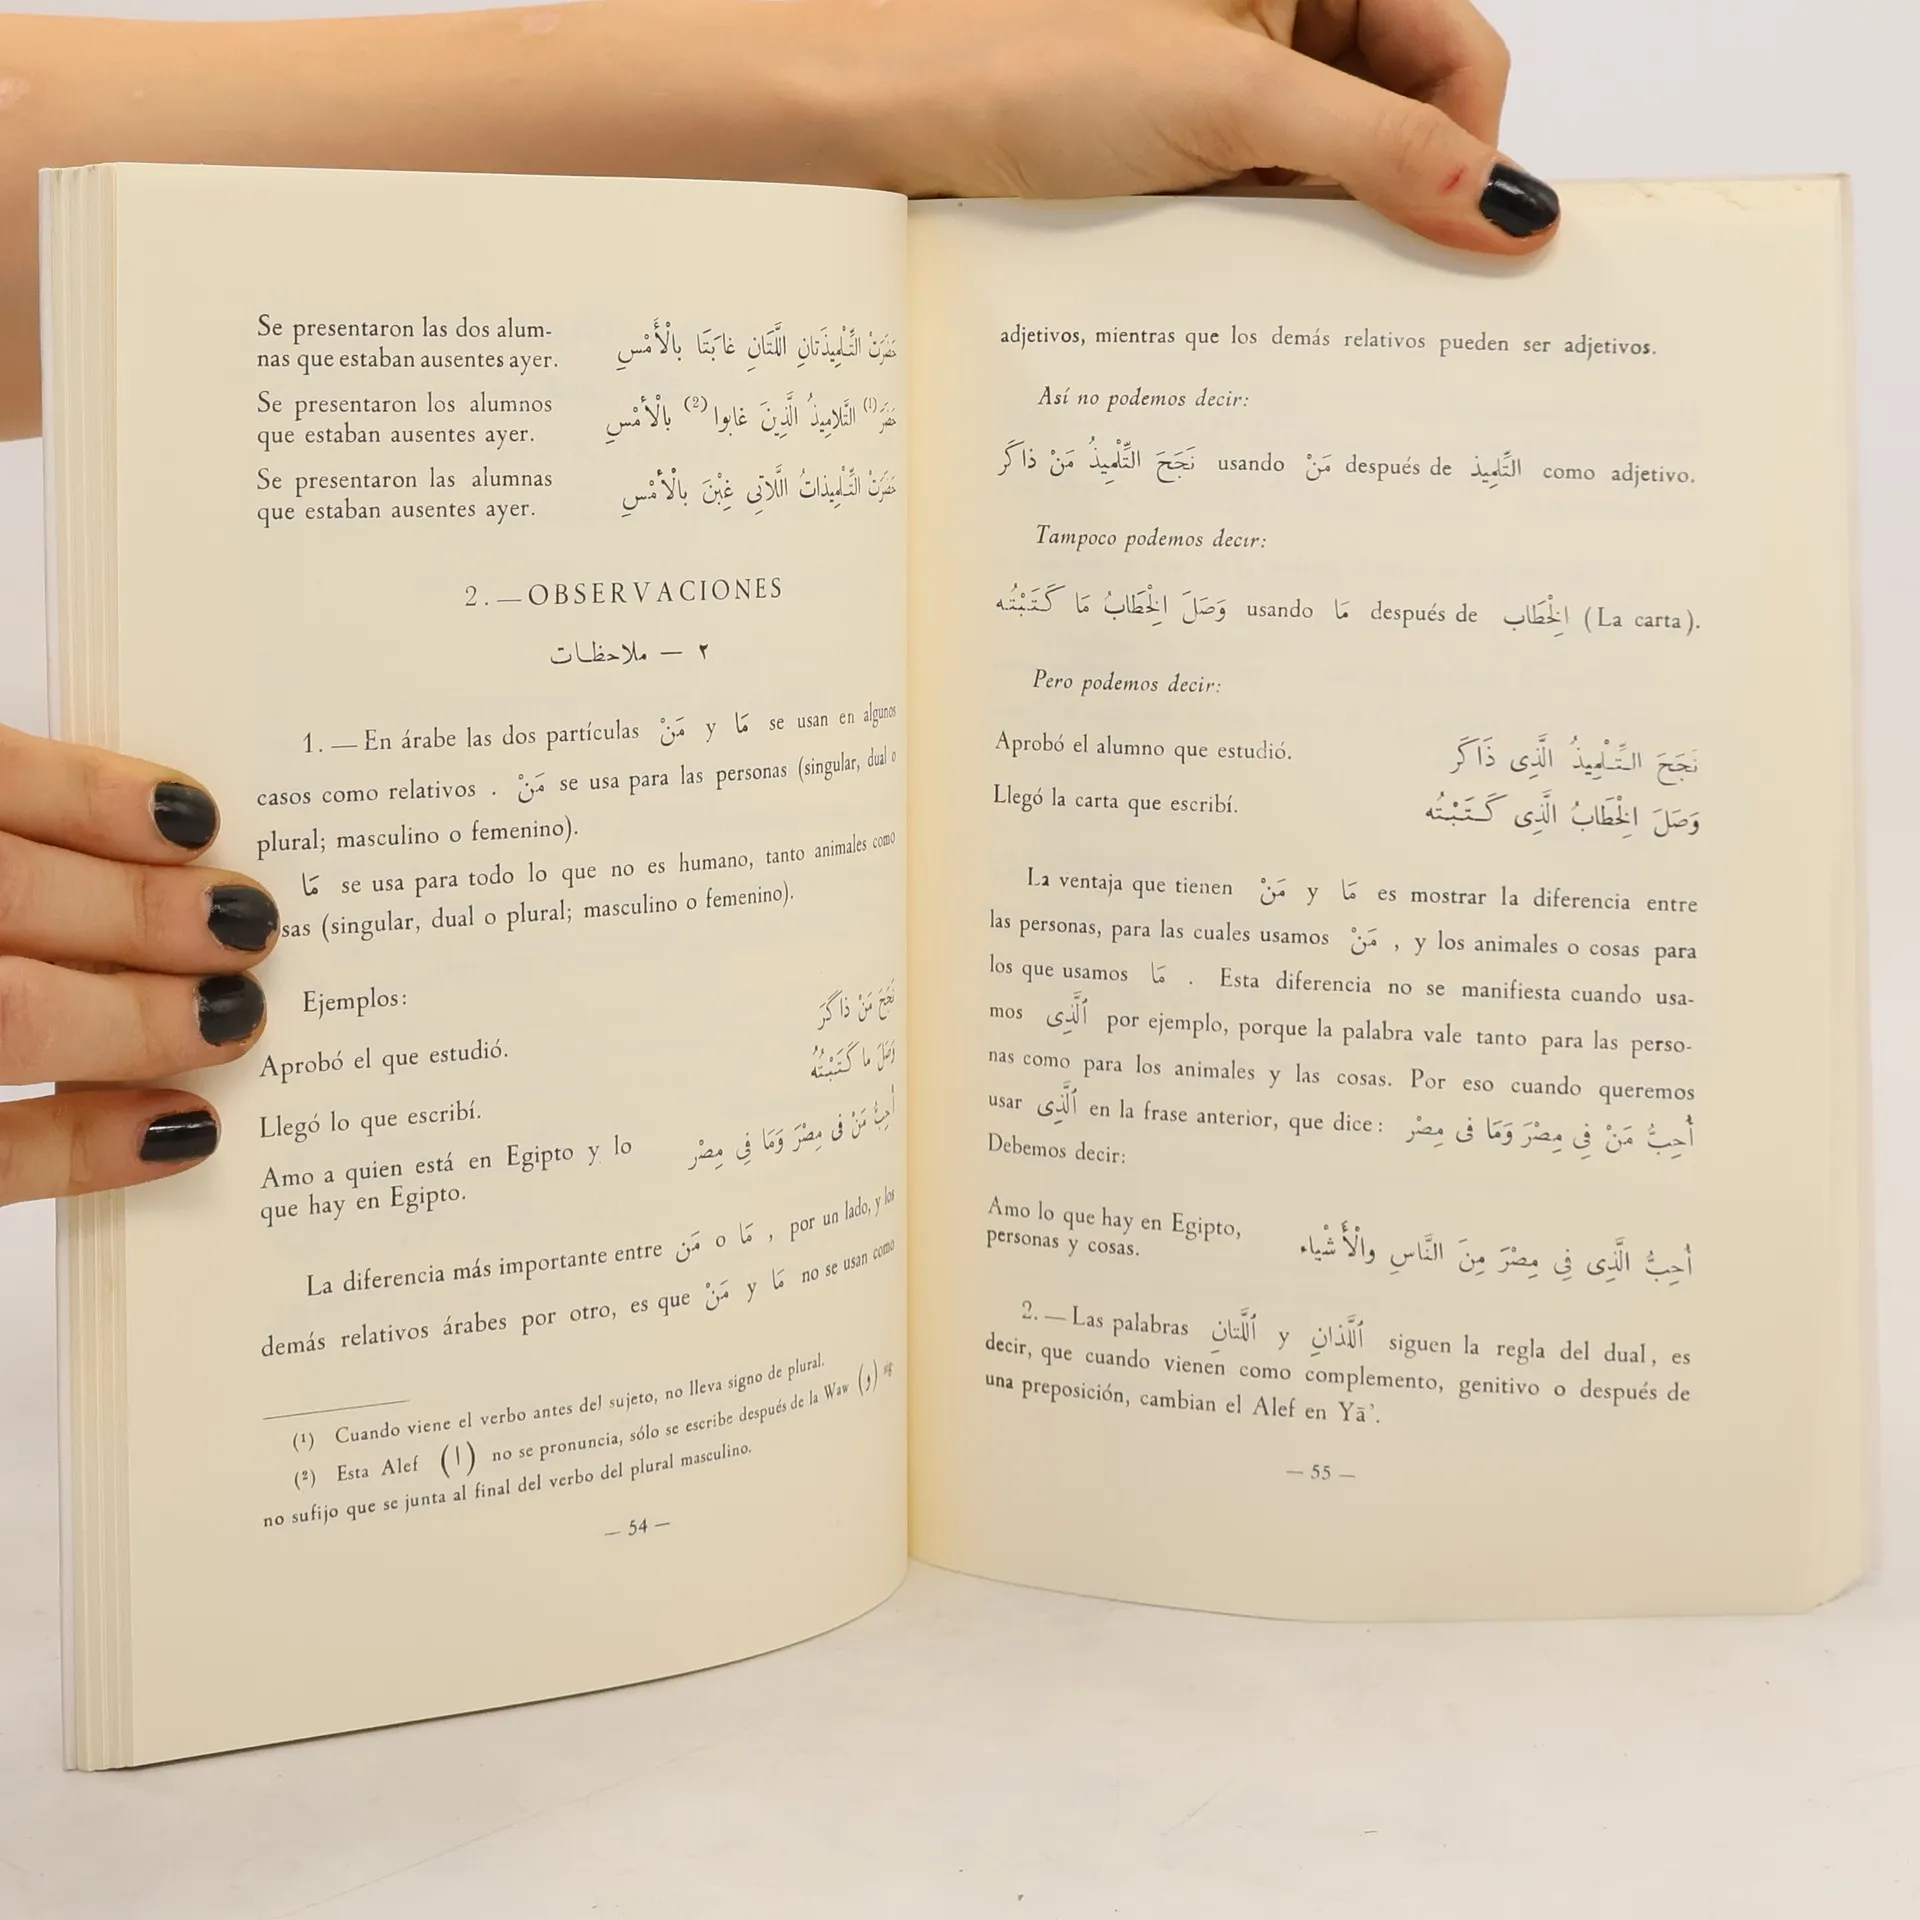 Se presentaron las dos alum-
nas que estaban ausentes ayer.
حَضَرَتْ التِّلْمِيذَتانِ اللَّتَانِ غابَتَا بالْأَمْسِ
Se presentaron los alumnos
que estaban ausentes ayer.
حَضَرَ (١) التَّلامِيذُ الَّذِينَ غابوا (2) بالْأمْسِ
Se presentaron las alumnas
que estaban ausentes ayer.
حَضَرَتْ التِّلْمِيذاتُ اللَّاتِي غِبْنَ بالْأمْسِ
2. — OBSERVACIONES
٢ — ملاحظات
1. — En árabe las dos partículas مَنْ y مَا se usan en algunos
casos como relativos . مَنْ se usa para las personas (singular, dual o
plural; masculino o femenino).
مَا se usa para todo lo que no es humano, tanto animales como
sas (singular, dual o plural; masculino o femenino).
Ejemplos:
Aprobó el que estudió. نَجَحَ مَنْ ذاكَرَ
Llegó lo que escribí. وَصَلَ ما كَتَبْتُهُ
Amo a quien está en Egipto y lo
que hay en Egipto.
أُحِبُّ مَنْ فى مِصْرَ وَمَا فِي مِصْر
La diferencia más importante entre مَن o مَا , por un lado, y los
demás relativos árabes por otro, es que مَنْ y مَا no se usan como
(1) Cuando viene el verbo antes del sujeto, no lleva signo de plural.
(2) Esta Alef (ا) no se pronuncia, sólo se escribe después de la Waw (و) sig
no sufijo que se junta al final del verbo del plural masculino.
— 54 —
adjetivos, mientras que los demás relativos pueden ser adjetivos.
Así no podemos decir:
نَجَحَ التِّلْمِيذُ مَنْ ذاكَر usando مَنْ después de التِّلمِيذ como adjetivo.
Tampoco podemos decir:
وَصَلَ الْخِطَابُ مَا كَتَبْتُه usando مَا después de الْخِطَاب (La carta).
Pero podemos decir:
Aprobó el alumno que estudió. نَجَحَ التِّلْمِيذُ الَّذِى ذَاكَر
Llegó la carta que escribí. وَصَلَ الْخِطَابُ الَّذِى كَتَبْتُه
La ventaja que tienen مَنْ y مَا es mostrar la diferencia entre
las personas, para las cuales usamos مَنْ , y los animales o cosas para
los que usamos مَا . Esta diferencia no se manifiesta cuando usa-
mos ٱلَّذِى por ejemplo, porque la palabra vale tanto para las perso-
nas como para los animales y las cosas. Por eso cuando queremos
usar ٱلَّذِى en la frase anterior, que dice: أُحِبُّ مَنْ فِي مِصْرَ وَمَا فى مِصْر
Debemos decir:
Amo lo que hay en Egipto,
personas y cosas.
أُحِبُّ الَّذِى فِي مِصْرَ مِنَ النَّاسِ والْأَشْياء
2. — Las palabras ٱللَّتانِ y ٱللَّذانِ siguen la regla del dual, es
decir, que cuando vienen como complemento, genitivo o después de
una preposición, cambian el Alef en Yā’.
— 55 —